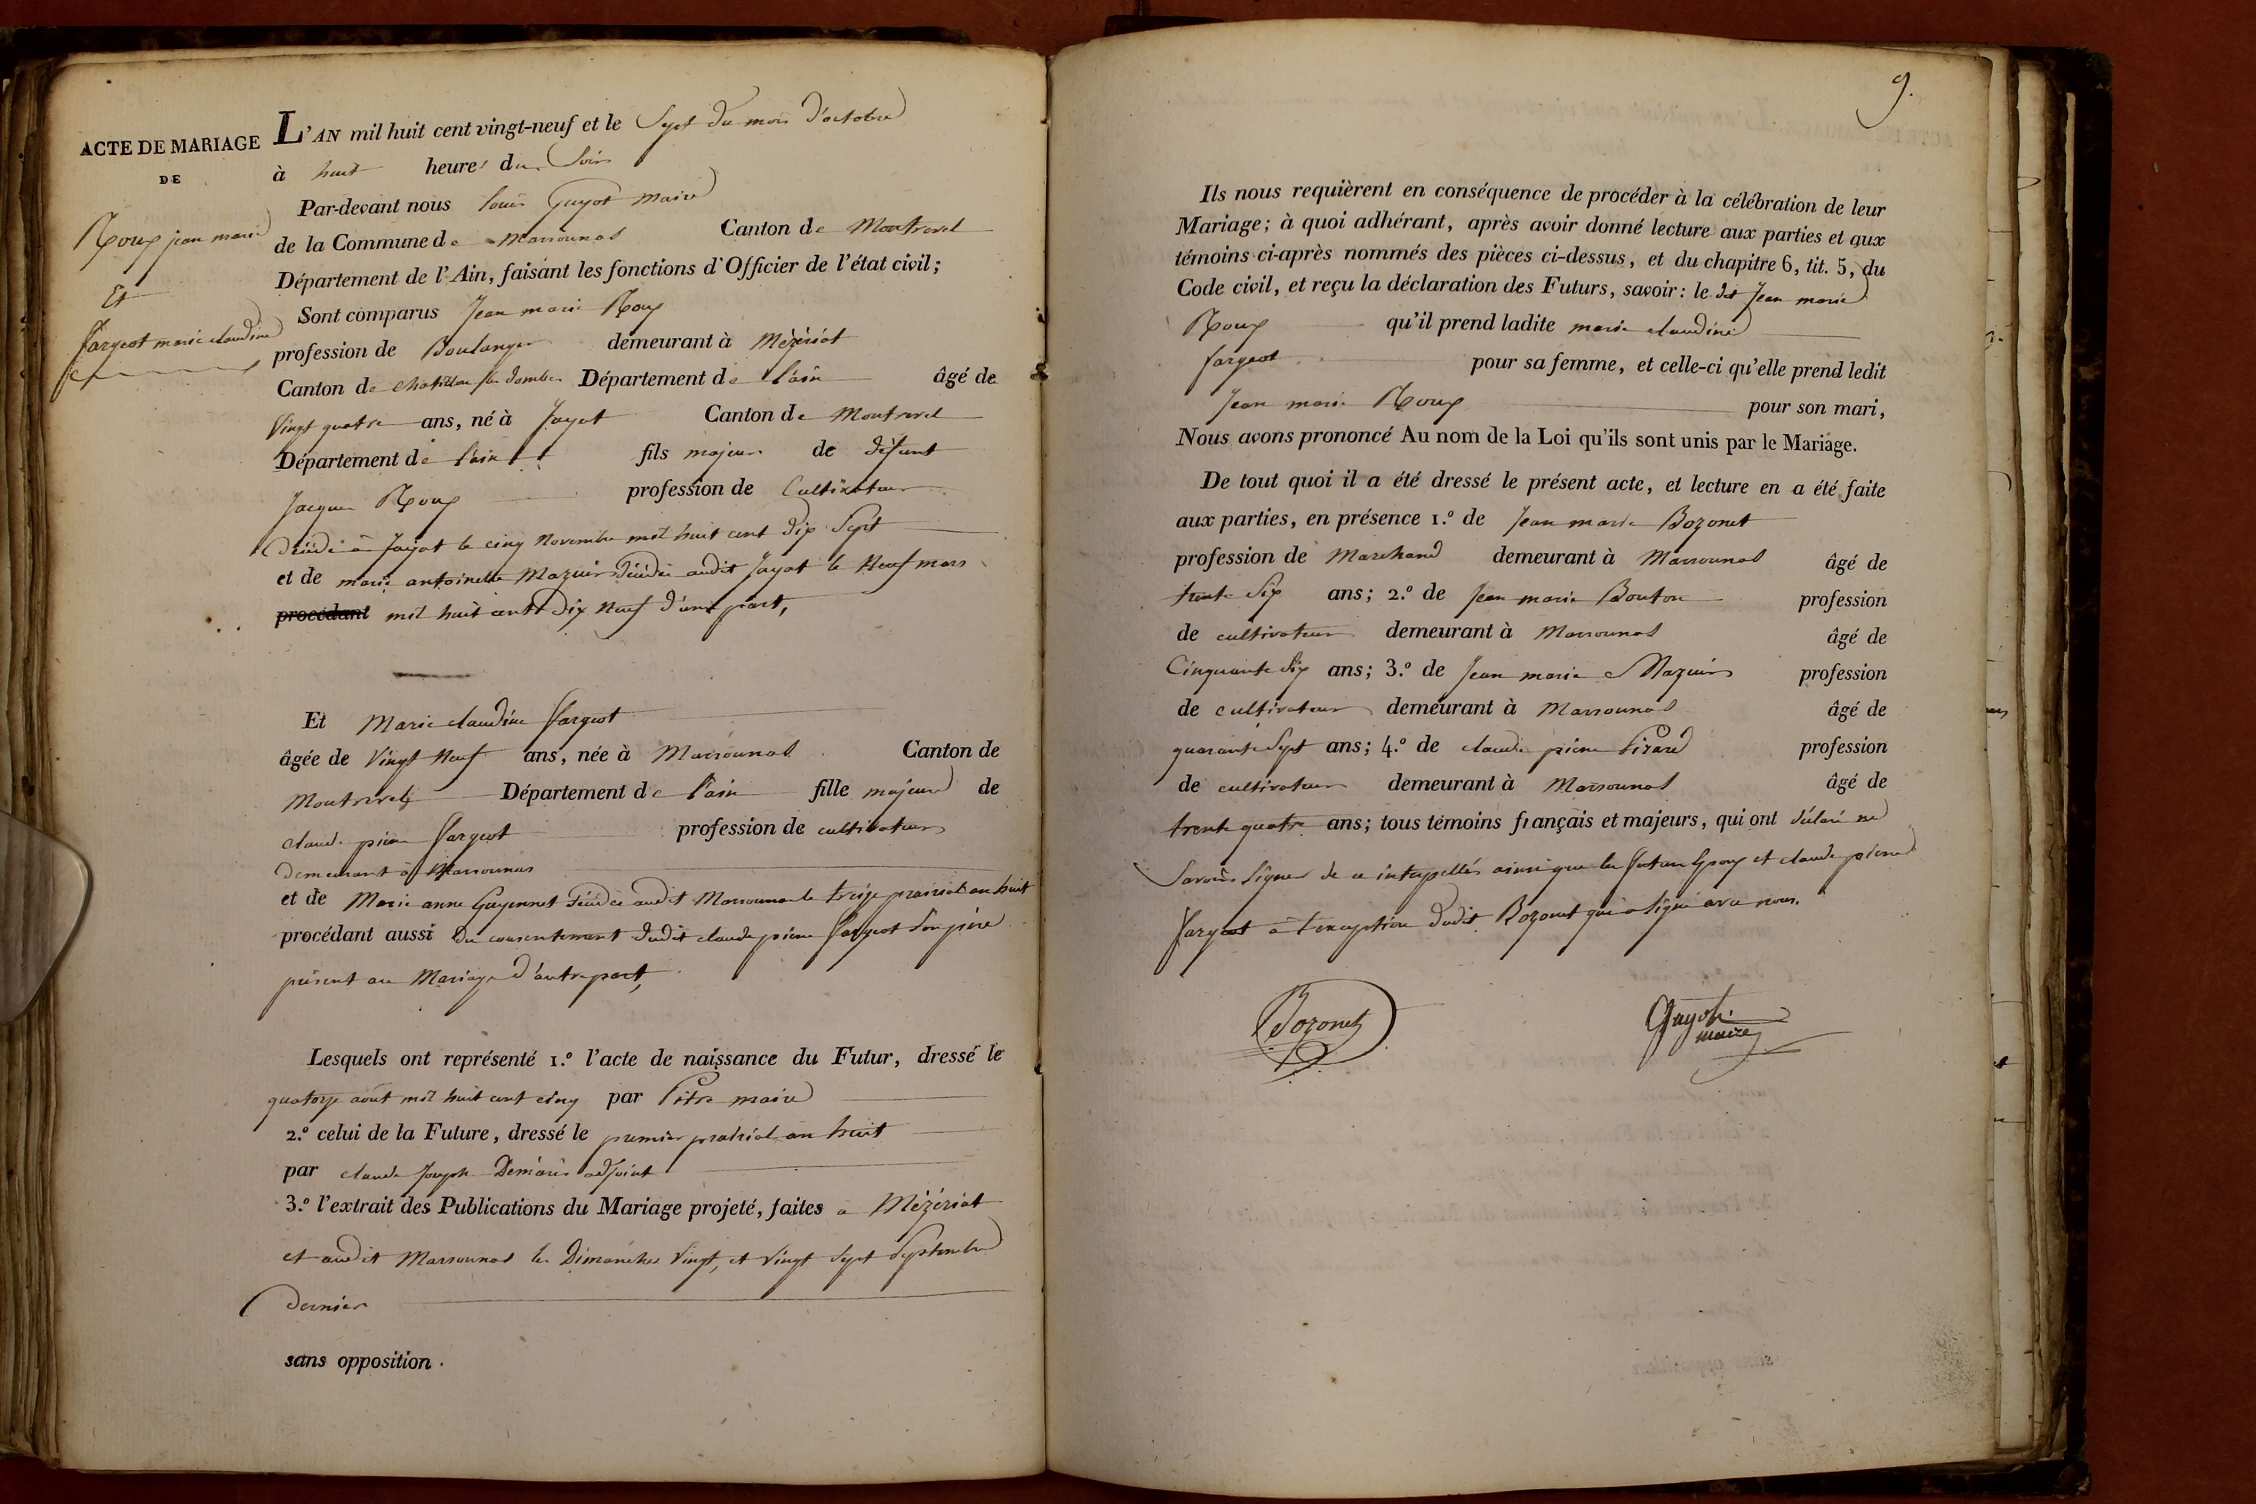 ACTE DE MARIAGE
DE
Roux jean marie
Et
fargeot marie claudine
L'AN mil huit cent vingt-neuf et le Sept du mois d'octobre
à huit heures du Soir
Par-devant nous louis Guyot maire
de la Commune de Marsonnas Canton de Montrevel
Département de l'Ain, faisant les fonctions d'Officier de l'état civil;
Sont comparus Jean marie Roux
profession de Boulanger demeurant à Mézériat
Canton de chatillon les dombes Département de l'ain âgé de
Vingt quatre ans, né à Jayat Canton de Montrevel
Département de l'ain fils majeur de défunt
Jacques Roux profession de Cultivateur
décédé à Jayat le cinq Novembre mil huit cent dix Sept
et de marie antoinette Mazuir décédée audit Jayat le Neuf mars
procédant mil huit cent dix Neuf d'une part,
Et Marie claudine fargeot
âgée de Vingt Neuf ans, née à Marsonnas Canton de
Montrevel Département de l'ain fille majeure de
claude pierre fargeot profession de cultivateur
demeurant à Marsonnas
et de Marie anne Guyennet décédée audit Marsonnas le treize prairial an huit
procédant aussi du consentement dudit claude pierre fargeot Son père
présent au Mariage d'autre part,
Lesquels ont représenté 1.º l'acte de naissance du Futur, dressé le
quatorze août mil huit cent cinq par Pitre maire
2.º celui de la Future, dressé le premier prairial an huit
par claude Joseph Demaris adjoint
3.º l'extrait des Publications du Mariage projeté, faites à Mézériat
et audit Marsonnas les Dimanches Vingt, et Vingt Sept Septembre
dernier
sans opposition.
9.
Ils nous requièrent en conséquence de procéder à la célébration de leur
Mariage; à quoi adhérant, après avoir donné lecture aux parties et aux
témoins ci-après nommés des pièces ci-dessus, et du chapitre 6, tit. 5, du
Code civil, et reçu la déclaration des Futurs, savoir: le dit Jean marie
Roux qu'il prend ladite marie claudine
fargeot pour sa femme, et celle-ci qu'elle prend ledit
Jean marie Roux pour son mari,
Nous avons prononcé Au nom de la Loi qu'ils sont unis par le Mariage.
De tout quoi il a été dressé le présent acte, et lecture en a été faite
aux parties, en présence 1.º de Jean marie Bozonet
profession de Marchand demeurant à Marsonnas âgé de
trente Six ans; 2.º de Jean marie Bouton profession
de cultivateur demeurant à Marsonnas âgé de
Cinquante Six ans; 3.º de Jean marie Mazuir profession
de cultivateur demeurant à Marsonnas âgé de
quarante Sept ans; 4.º de claude pierre Pirard profession
de cultivateur demeurant à Marsonnas âgé de
trente quatre ans; tous témoins français et majeurs, qui ont déclaré ne
Savoir Signer de ce interpellés ainsi que les futurs Epoux et claude pierre
fargeot à l'exception dudit Bozonet qui a Signé avec nous.
Bozonet
Guyot
maire